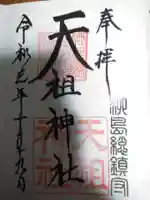 奉拝
島総鎮守
天祖神社
天祖
神社
令和元年十月九日